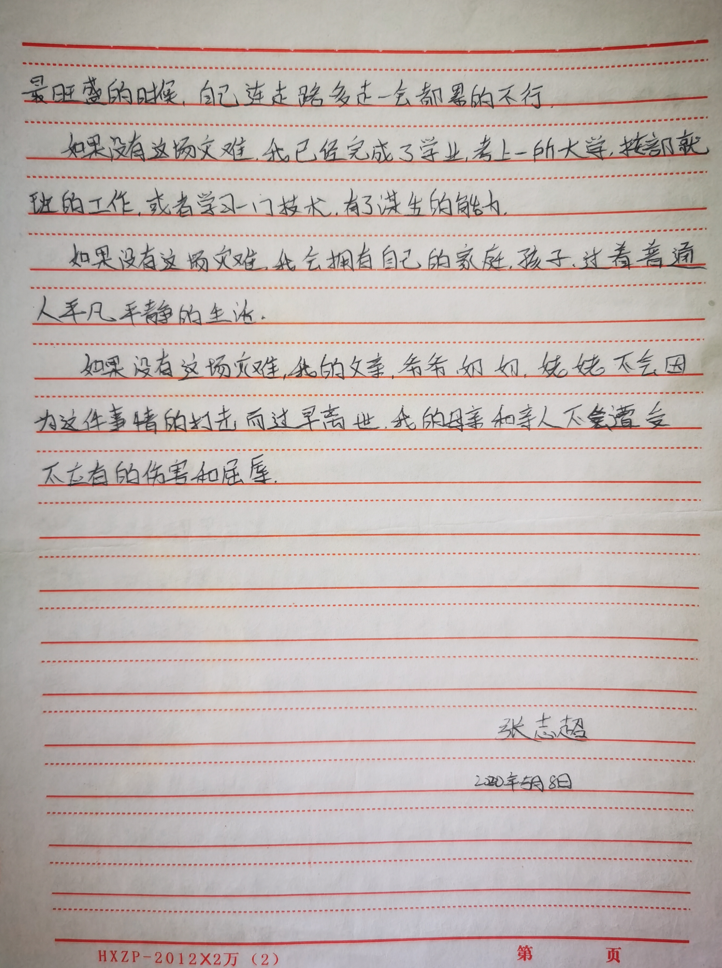 最旺盛的时候，自己连走路多走一会都累的不行．
如果没有这场灾难，我已经完成了学业，考上一所大学，按部就
班的工作，或者学习一门技术，有了谋生的能力．
如果没有这场灾难，我会拥有自己的家庭，孩子，过着普通
人平凡平静的生活．
如果没有这场灾难，我的父亲，爷爷奶奶，姥姥不会因
为这件事情的打击而过早离世，我的母亲和亲人不会遭受
不应有的伤害和屈辱．
张志超
2020年5月8日
HXZP-2012X2万（2） 第 页